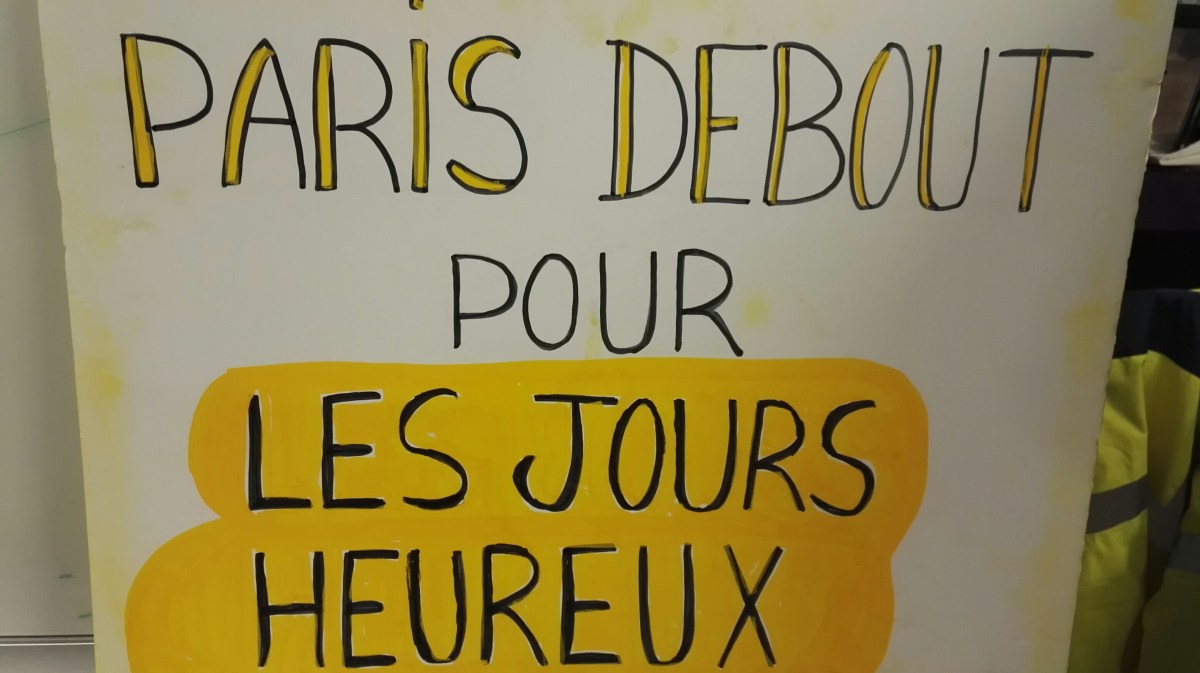 PARIS DEBOUT
POUR
LES JOURS
HEUREUX